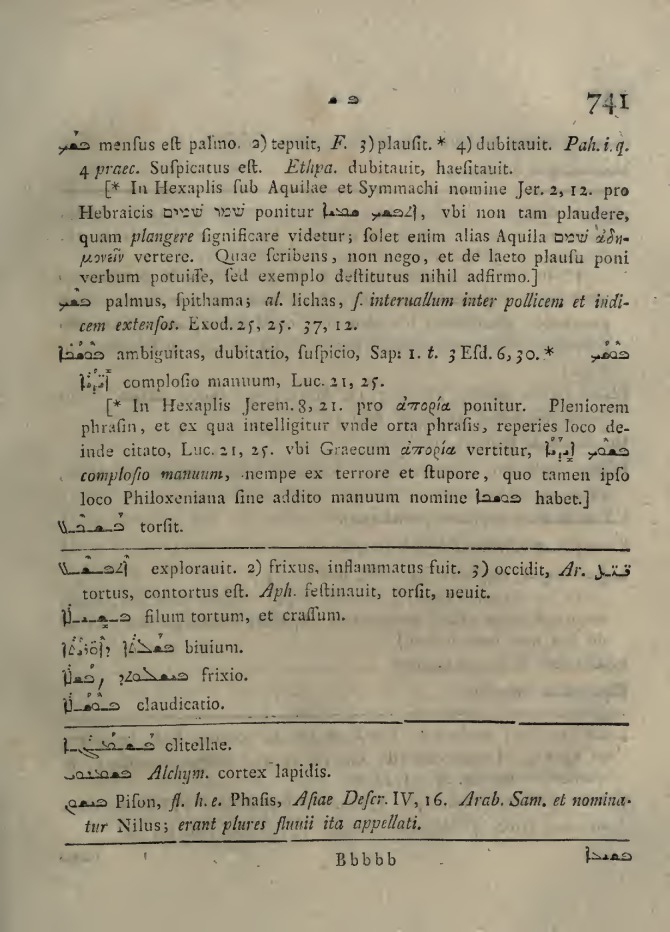 741
menſus eſt palmo. 2) tepuit, F. 3) plauſit. * 4) dubitauit. Pah. i. q.
4 praec. Suſpicatus eſt. Ethpa. dubitauit, haeſitauit.
[* In Hexaplis ſub Aquilae et Symmachi nomine Jer. 2, 12. pro
Hebraicis שׁמו שׁמים ponitur, vbi non tam plaudere,
quam plangere ſignificare videtur; ſolet enim alias Aquila שׁמים ἀδη-
μονεῖν vertere. Quae ſcribens, non nego, et de laeto plauſu poni
verbum potuiſſe, ſed exemplo deſtitutus nihil adfirmo.]
palmus, ſpithama; al. lichas, ſ. interuallum inter pollicem et indi-
cem extenſos. Exod. 25, 25. 37, 12.
ambiguitas, dubitatio, ſuſpicio, Sap. 1. t. 3 Eſd. 6, 30. *
comploſio manuum, Luc. 21, 25.
[* In Hexaplis Jerem. 8, 21. pro ἀπορία ponitur. Pleniorem
phraſin, et ex qua intelligitur vnde orta phraſis, reperies loco de-
inde citato, Luc. 21, 25. vbi Graecum ἀπορία vertitur,
comploſio manuum, nempe ex terrore et ſtupore, quo tamen ipſo
loco Philoxeniana ſine addito manuum nomine habet.]
torſit.
explorauit. 2) frixus, inflammatus fuit. 3) occidit, Ar.
tortus, contortus eſt. Aph. feſtinauit, torſit, neuit.
filum tortum, et craſſum.
biuium.
frixio.
claudicatio.
clitellae.
Alchym. cortex lapidis.
Piſon, fl. h. e. Phaſis, Aſiae Deſcr. IV, 16. Arab. Sam. et nomina-
tur Nilus; erant plures fluuii ita appellati.
Bbbbb